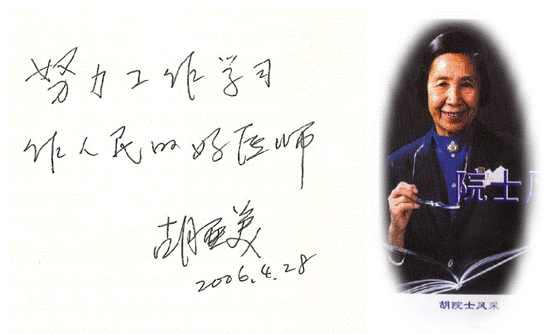 努力工作学习
作人民的好医师
胡亚美
2006.4.28
院士风
胡院士风采